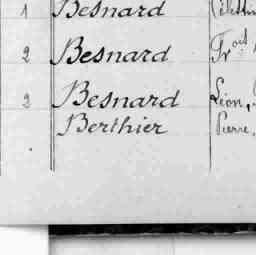 1 Besnard
2 Besnard
2 Besnard Léon,
Berthier Pierre,